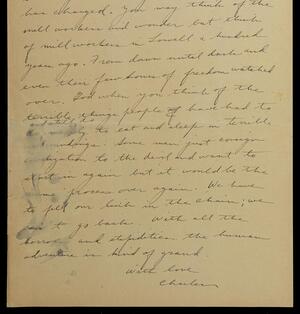 has changed. You may think of the
mill workers and wonder but think
of mill workers in Lowell a hundred
years ago. From dawn until dark and
even their few hours of freedom watched
over. God when you think of the
terrible things people have had to
to eat and sleep in terrible
Some men just
to the dirt and want to
start in again but it would be the
same process over again. We have
to put our link in the chain; we
to go back. With all the
horror and stupidities the human
adventure is kind of grand.
With love
Charles